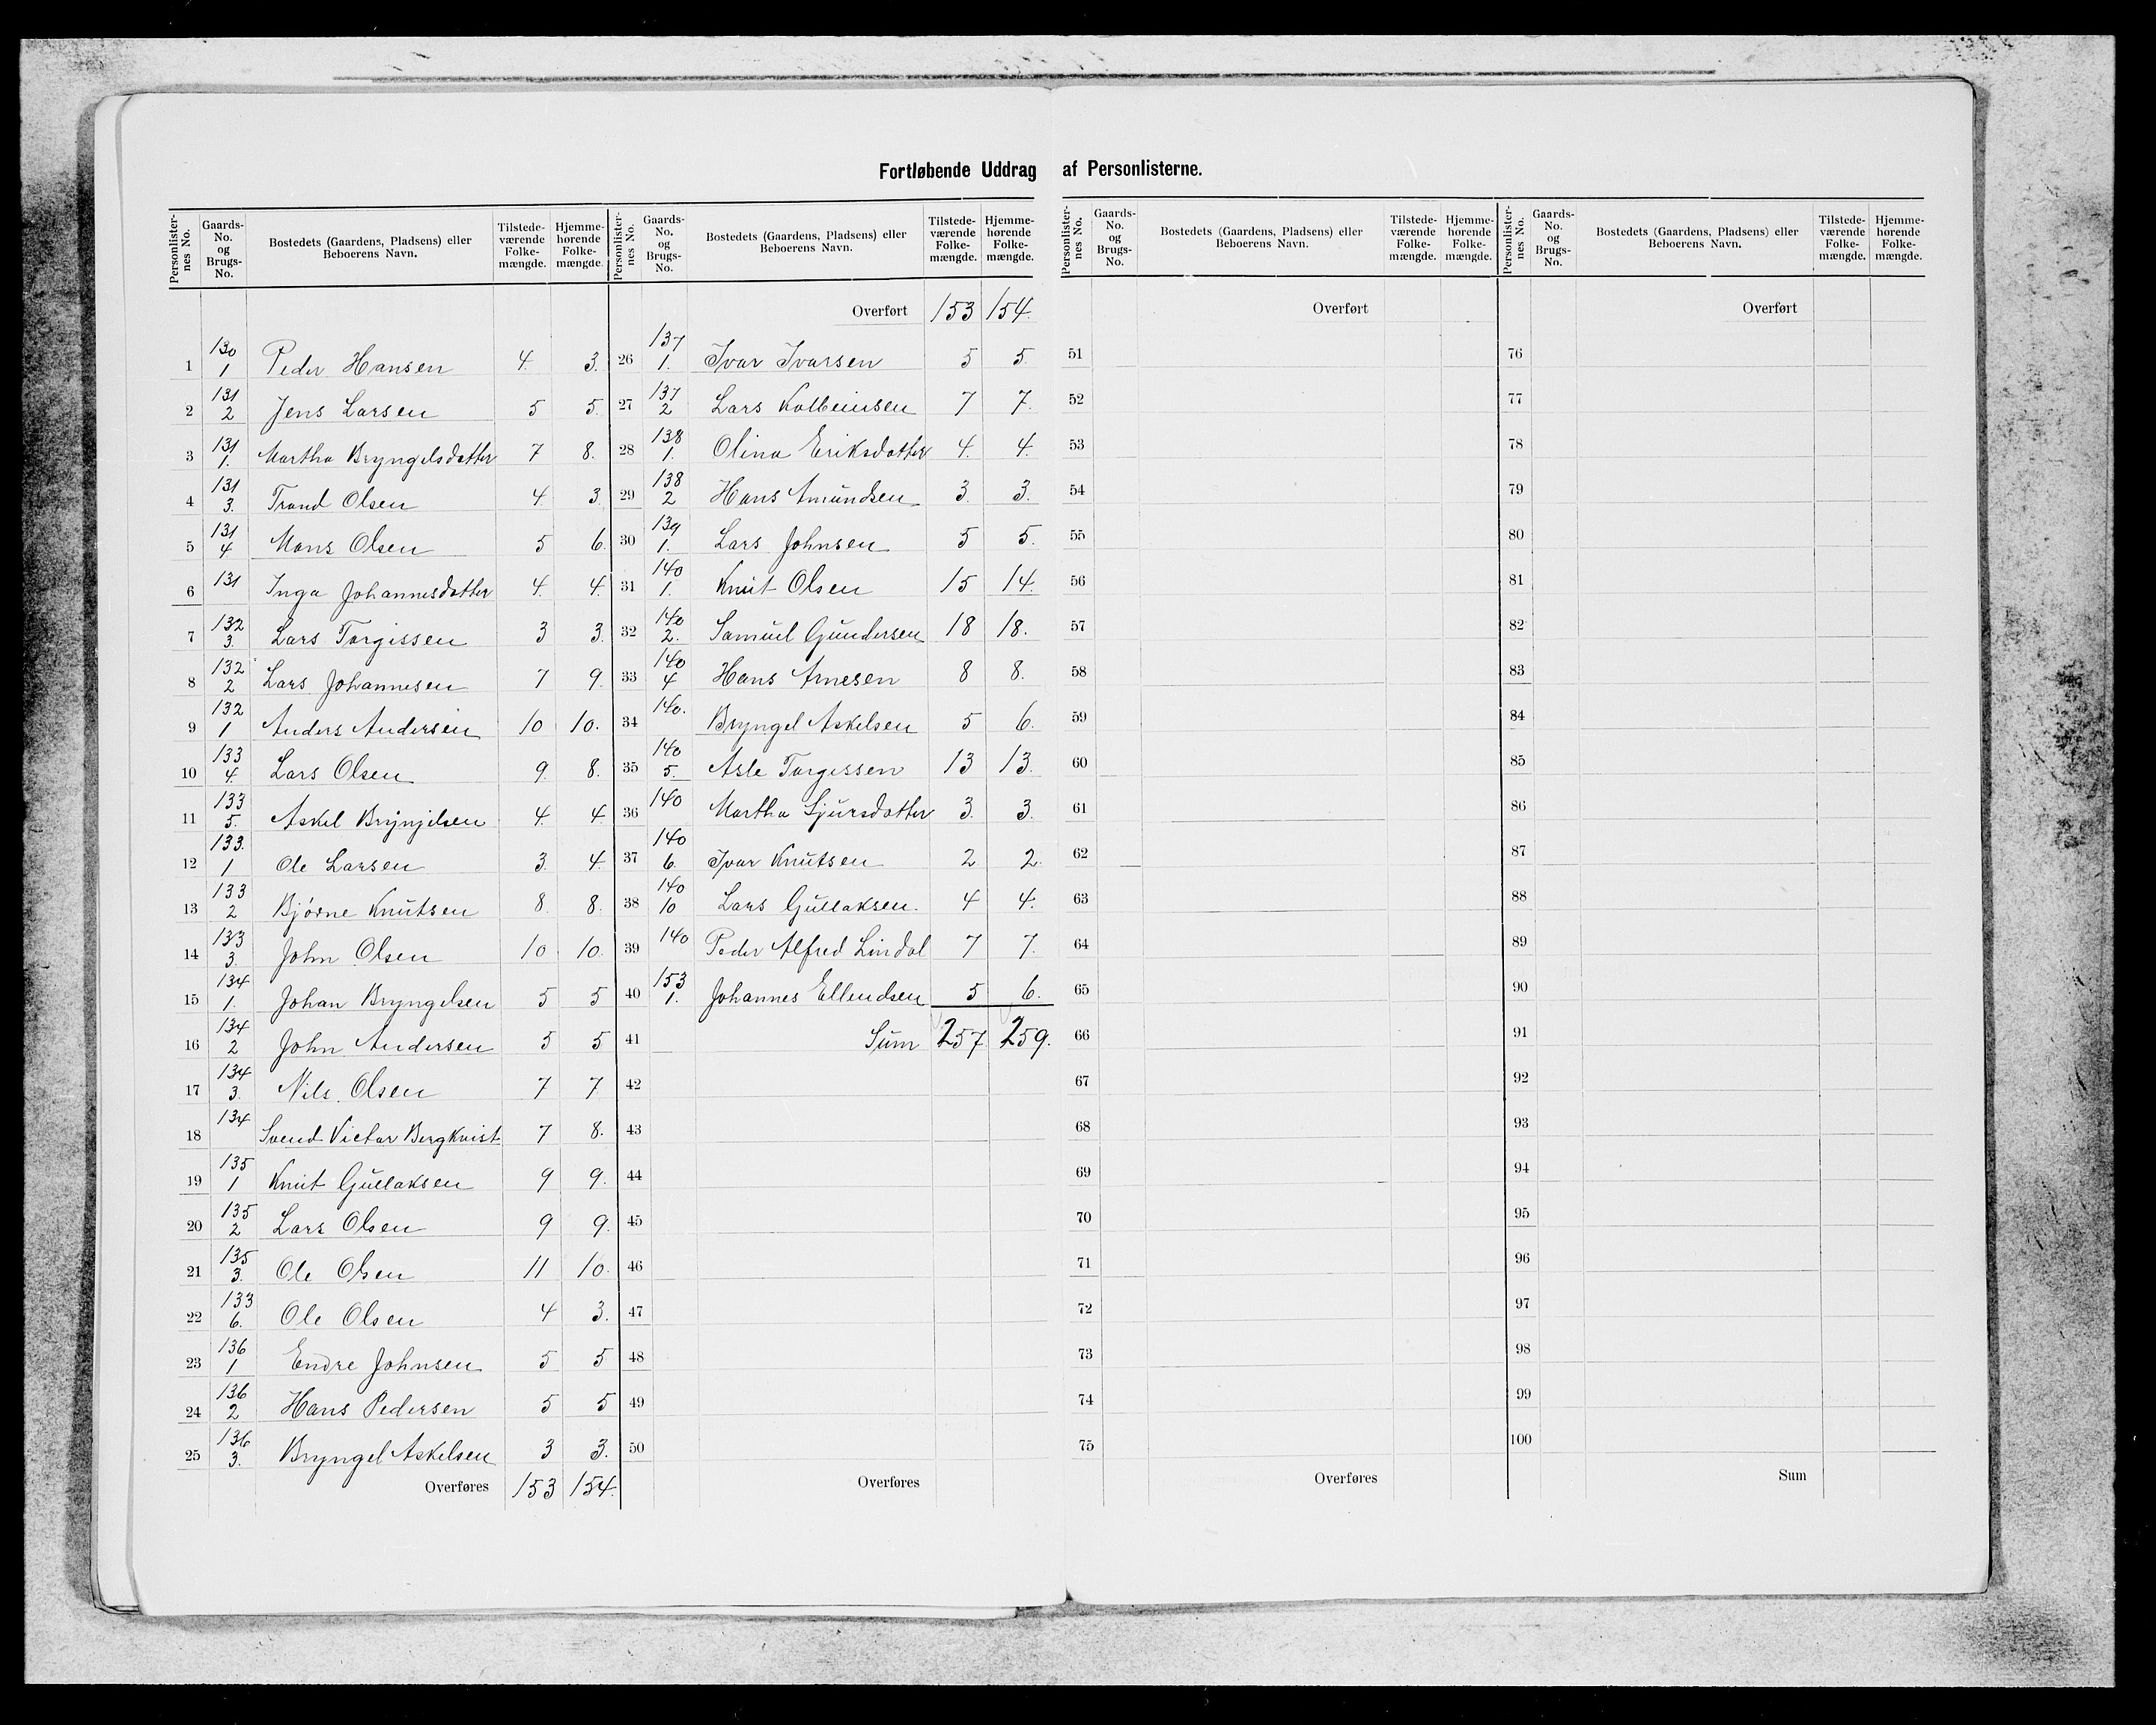 Fortløbende Uddrag af Personlisterne.
Personlister-nes No. Gaards-No. og Brugs-No. Bostedets (Gaardens, Pladsens) eller Beboerens Navn. Tilstede-værende Folke-mængde. Hjemme-hørende Folke-mængde.
1 130 1 Peder Hansen 4. 3.
2 131 2 Jens Larsen 5 5.
3 131 1. Martha Bryngelsdatter 7 8.
4 131 3. Trond Olsen 4. 3
5 131 4. Mons Olsen 5 6.
6 131 Inga Johannesdatter 4. 4.
7 132 3. Lars Torgissen 3 3.
8 132 2 Lars Johannesen 7 9.
9 132 1 Anders Andersen 10 10.
10 133 4. Lars Olsen 9. 8.
11 133 5. Askel Brynjelsen 4. 4.
12 133. 1 Ole Larsen 3. 4.
13 133 2 Bjørne Knutsen 8. 8.
14 133 3. John Olsen 10 10.
15 134 1. Johan Bryngelsen 5 5
16 134 2 John Andersen 5 5
17 134 3. Nils Olsen 7 7
18 134 Svend Victor Bergkvist 7 8.
19 135 1 Knut Gullaksen 9 9.
20 135 2 Lars Olsen 9 9.
21 135 3. Ole Olsen 11 10.
22 133 6. Ole Olsen 4 3.
23 136 1 Endre Johnsen 5 5
24 136 2 Hans Pedersen 5 5
25 136 3. Bryngel Askelsen 3 3.
Overføres 153 154.
Personlister-nes No. Gaards-No. og Brugs-No. Bostedets (Gaardens, Pladsens) eller Beboerens Navn. Tilstede-værende Folke-mængde. Hjemme-hørende Folke-mængde.
Overført 153 154.
26 137 1. Ivar Ivarsen 5 5.
27 137 2 Lars Kolbeinsen 7 7.
28 138 1. Olina Eriksdatter 4. 4.
29 138 2 Hans Amundsen 3. 3.
30 139 1. Lars Johnsen 5 5.
31 140 1. Knut Olsen 15 14.
32 140 2. Samuel Gundersen 18 18.
33 140 4 Hans Arnesen 8 8.
34 140. Bryngel Askelsen 5 6.
35 140 5. Asle Torgissen 13 13.
36 140 Martha Sjursdatter 3. 3.
37 140 6. Ivar Knutsen 2 2.
38 140 10 Lars Gullaksen. 4 4.
39 140 Peder Alfred Lindal 7 7.
40 153 1. Johannes Ellendsen 5 6.
41 Sum 257 259.
42
43
44
45
46
47
48
49
50
Overføres
Personlister-nes No. Gaards-No. og Brugs-No. Bostedets (Gaardens, Pladsens) eller Beboerens Navn. Tilstede-værende Folke-mængde. Hjemme-hørende Folke-mængde.
Overført
51
52
53
54
55
56
57
58
59
60
61
62
63
64
65
66
67
68
69
70
71
72
73
74
75
Overføres
Personlister-nes No. Gaards-No. og Brugs-No. Bostedets (Gaardens, Pladsens) eller Beboerens Navn. Tilstede-værende Folke-mængde. Hjemme-hørende Folke-mængde.
Overført
76
77
78
79
80
81
82
83
84
85
86
87
88
89
90
91
92
93
94
95
96
97
98
99
100
Sum